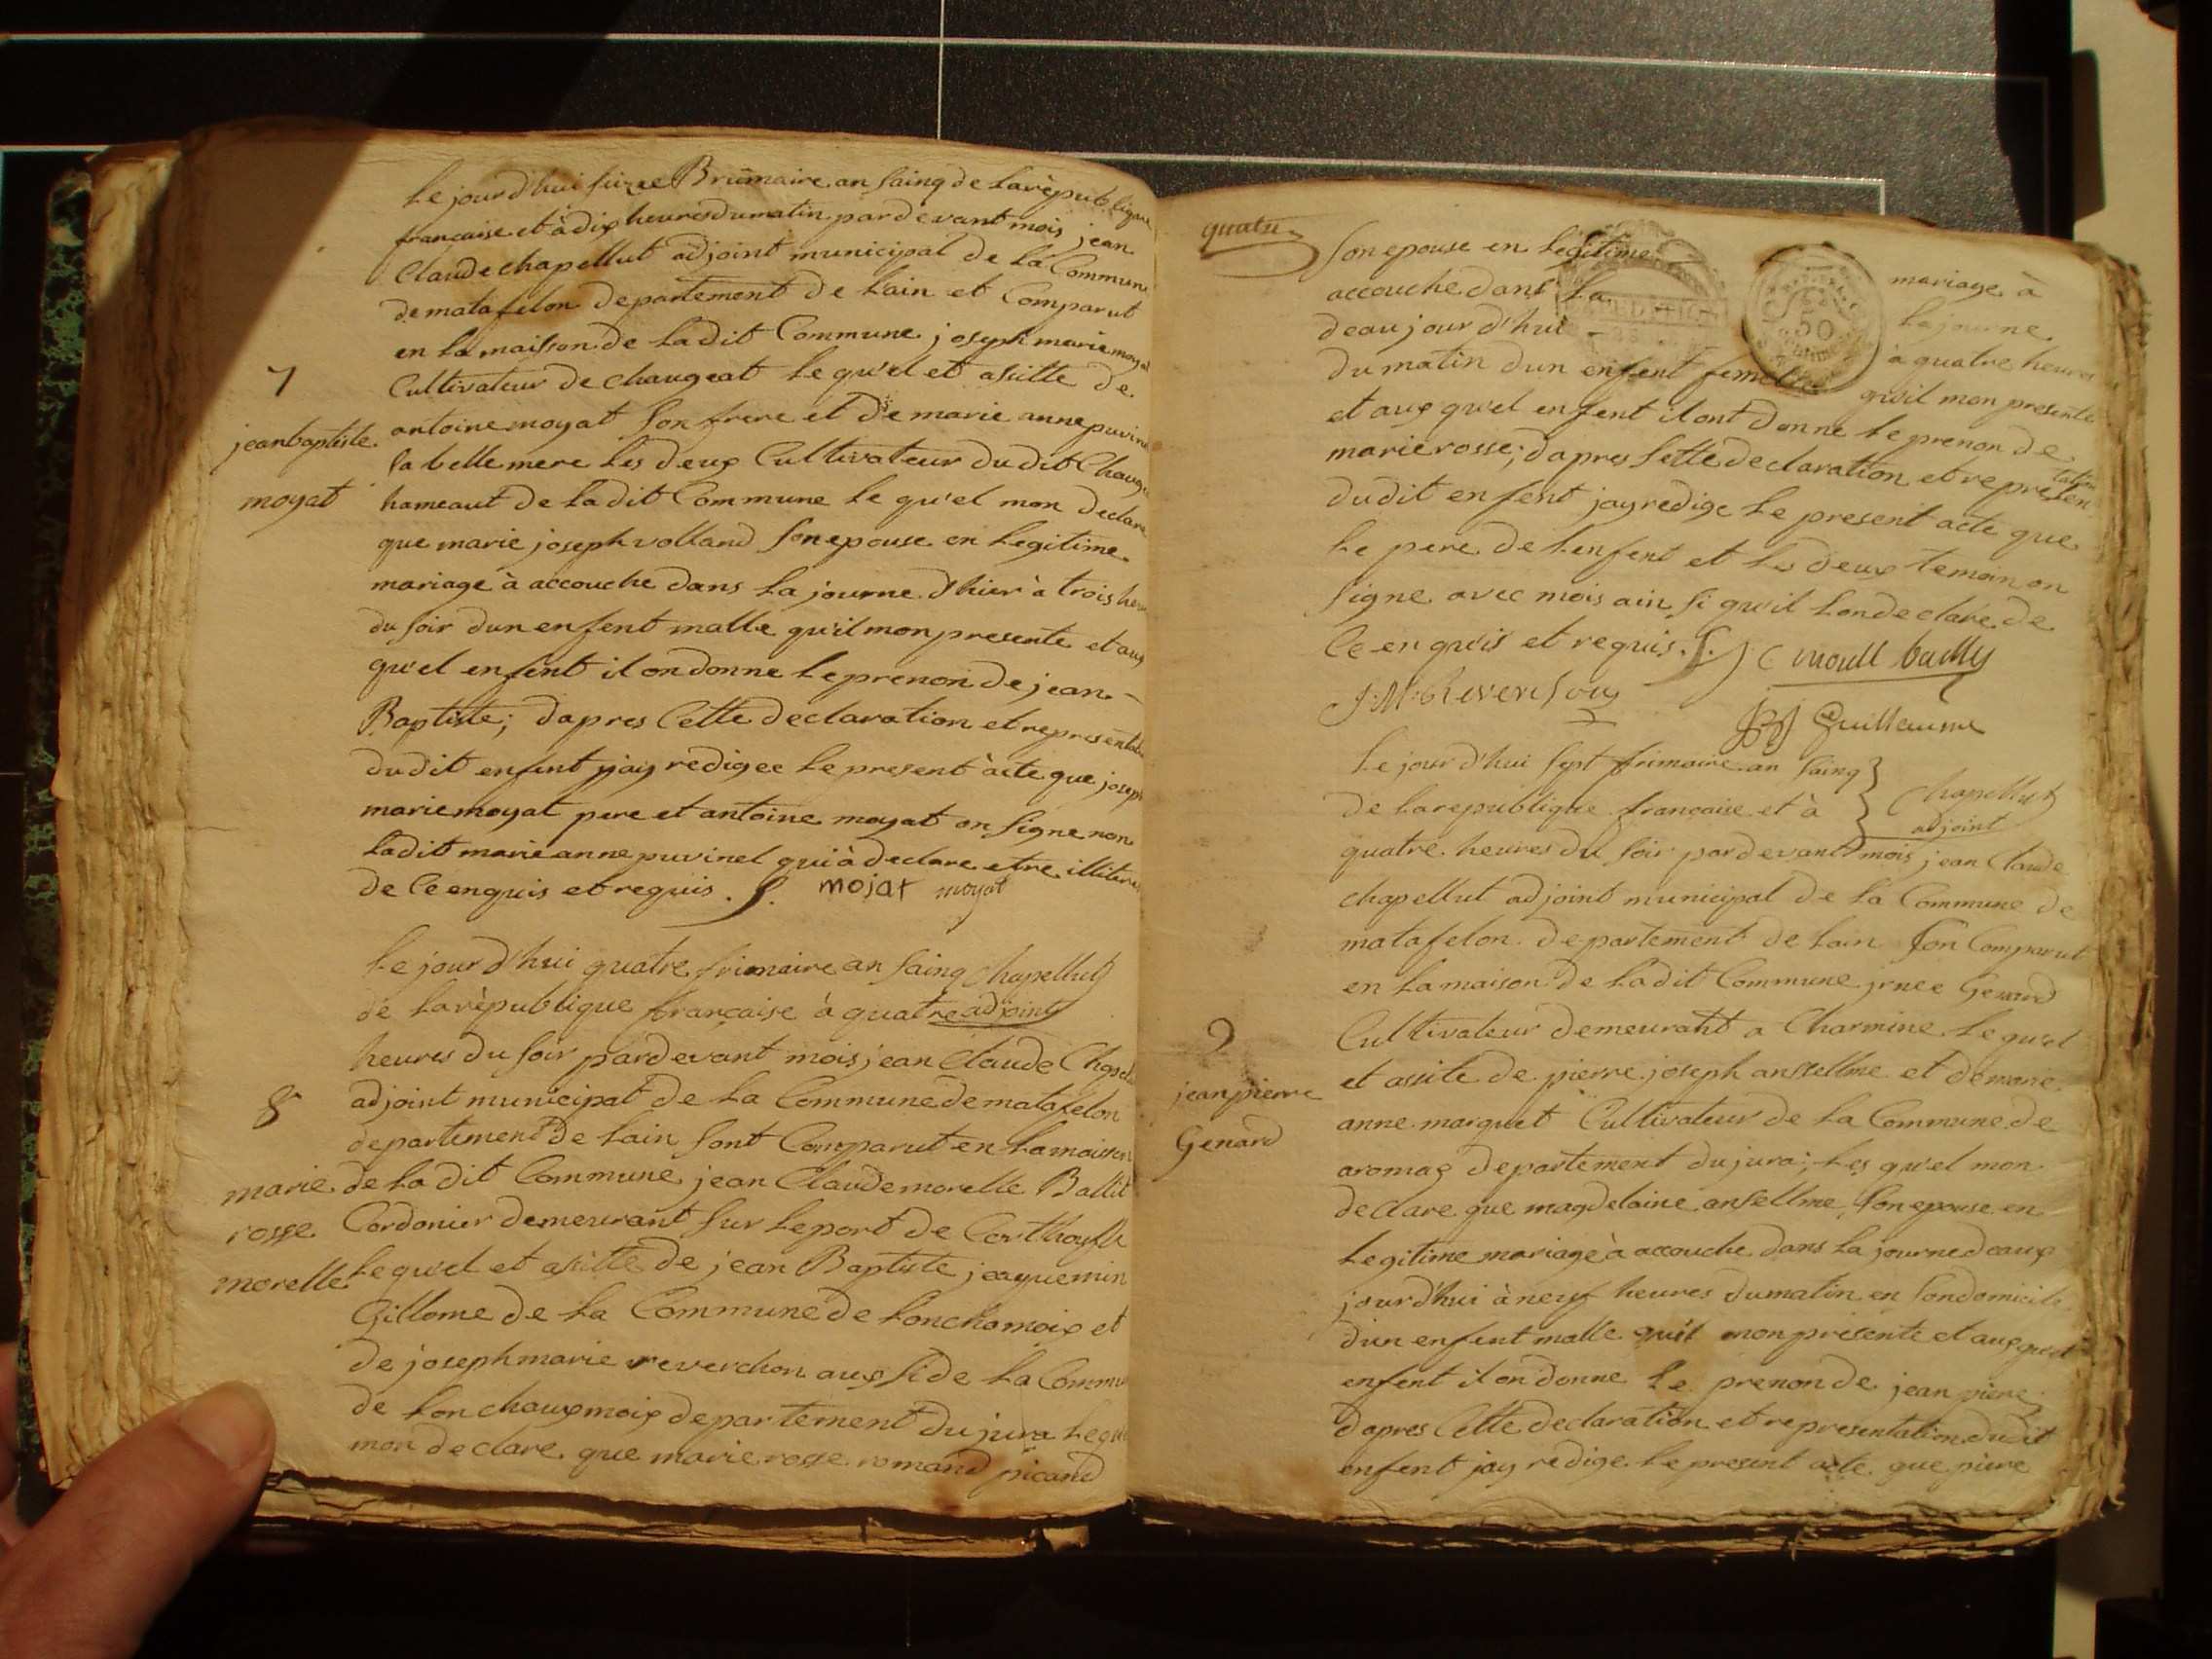 Le jour d'hui seizee Brumaire an sainq de la rèpublique
française et à dix heures du matin par devant mois jean
Claude chapellut adjoint municipal de la Commune
de matafelon departement de lain et Comparut
en la maisson de ladit Commune joseph marie moyat
Cultivateur de chaugeat le qu'el et asistte de
antoine moyat son frere et de marie anne puvinel
sa belle mere les deux Cultivateur du dit Chauge
hameaut de ladit Commune le qu'el mon declare
que marie joseph volland son epouse en legitime
mariage à accouche dans la journe d'hier à trois heu
du soir dun enfent malle qu'il mon presente et aux
qu'el enfent il on donne le prenon de jean
Baptiste; dapres Cette declaration et representation
dudit enfent jay redigee le present àcte que joseph
marie moyat pere et antoine moyat on signe non
ladit marie anne puvinel qui à declare etre illitere
de Ce enquis et requis. S. mojat moyat
7
jean baptiste
moyat
Le jour d'hui quatre frimaire an sainq Chapellut
de la rèpublique française à quatre adjoint
heures du soir par devant mois jean Claude Chapel
adjoint municipal de la Commune de matafelon
departement de lain sont Comparut en la maisson
de ladit Commune jean Claude morelle Ballit
Cordonier demeurant sur le port de
le qu'el et asitte de jean Baptiste jaquemin
Gillome de la Commune de lonchamoix et
de joseph marie reverchon aux si de la Commu
de lonchauxmoix departement du jura le qu
mon declare que marie rosse romand picand
8
marie
rosse
morelle
quatre
son epouse en legitime mariage à
accouche dans la la journe
deau jour d'hui à quatre heures
du matin dun enfent femelle qu'il mon presente
et aux qu'el enfent il ont donne le prenon de
marie rosse; dapres sette declaration et represen tation
dudit enfent jay redige le present acte que
le pere de lenfent et les deux temoin on
signe avec mois ain si qu'il lon declare de
Ce en quis et requis. S. C morell bailly
J: M: Reverchon
JBJ Guillaume
Le jour d'hui sept frimaire an sainq
de la republique française et à
Chapellut
adjoint
quatre heures du soir par devant mois jean Claude
chapellut adjoint municipal de la Commune de
matafelon departement de lain son Comparut
en la maison de ladit Commune jrnee Genard
Cultivateur demeurant a Charmine le qu'el
et assite de pierre joseph ansellme et de marie
anne marquet Cultivateur de la Commune de
aromas departement du jura; les qu'el mon
declare que magdelaine ansellme son epouse en
legitime mariage à accouche dans la journe deaux
jourd'hui à neuf heures du matin en son domicile
dun enfent malle quit mon presente et aux quel
enfent il on donne le prenon de jean piere
dapres Cette declaration et representation dudit
enfent jay redige le present acte que piere
9
jean pierre
Genard